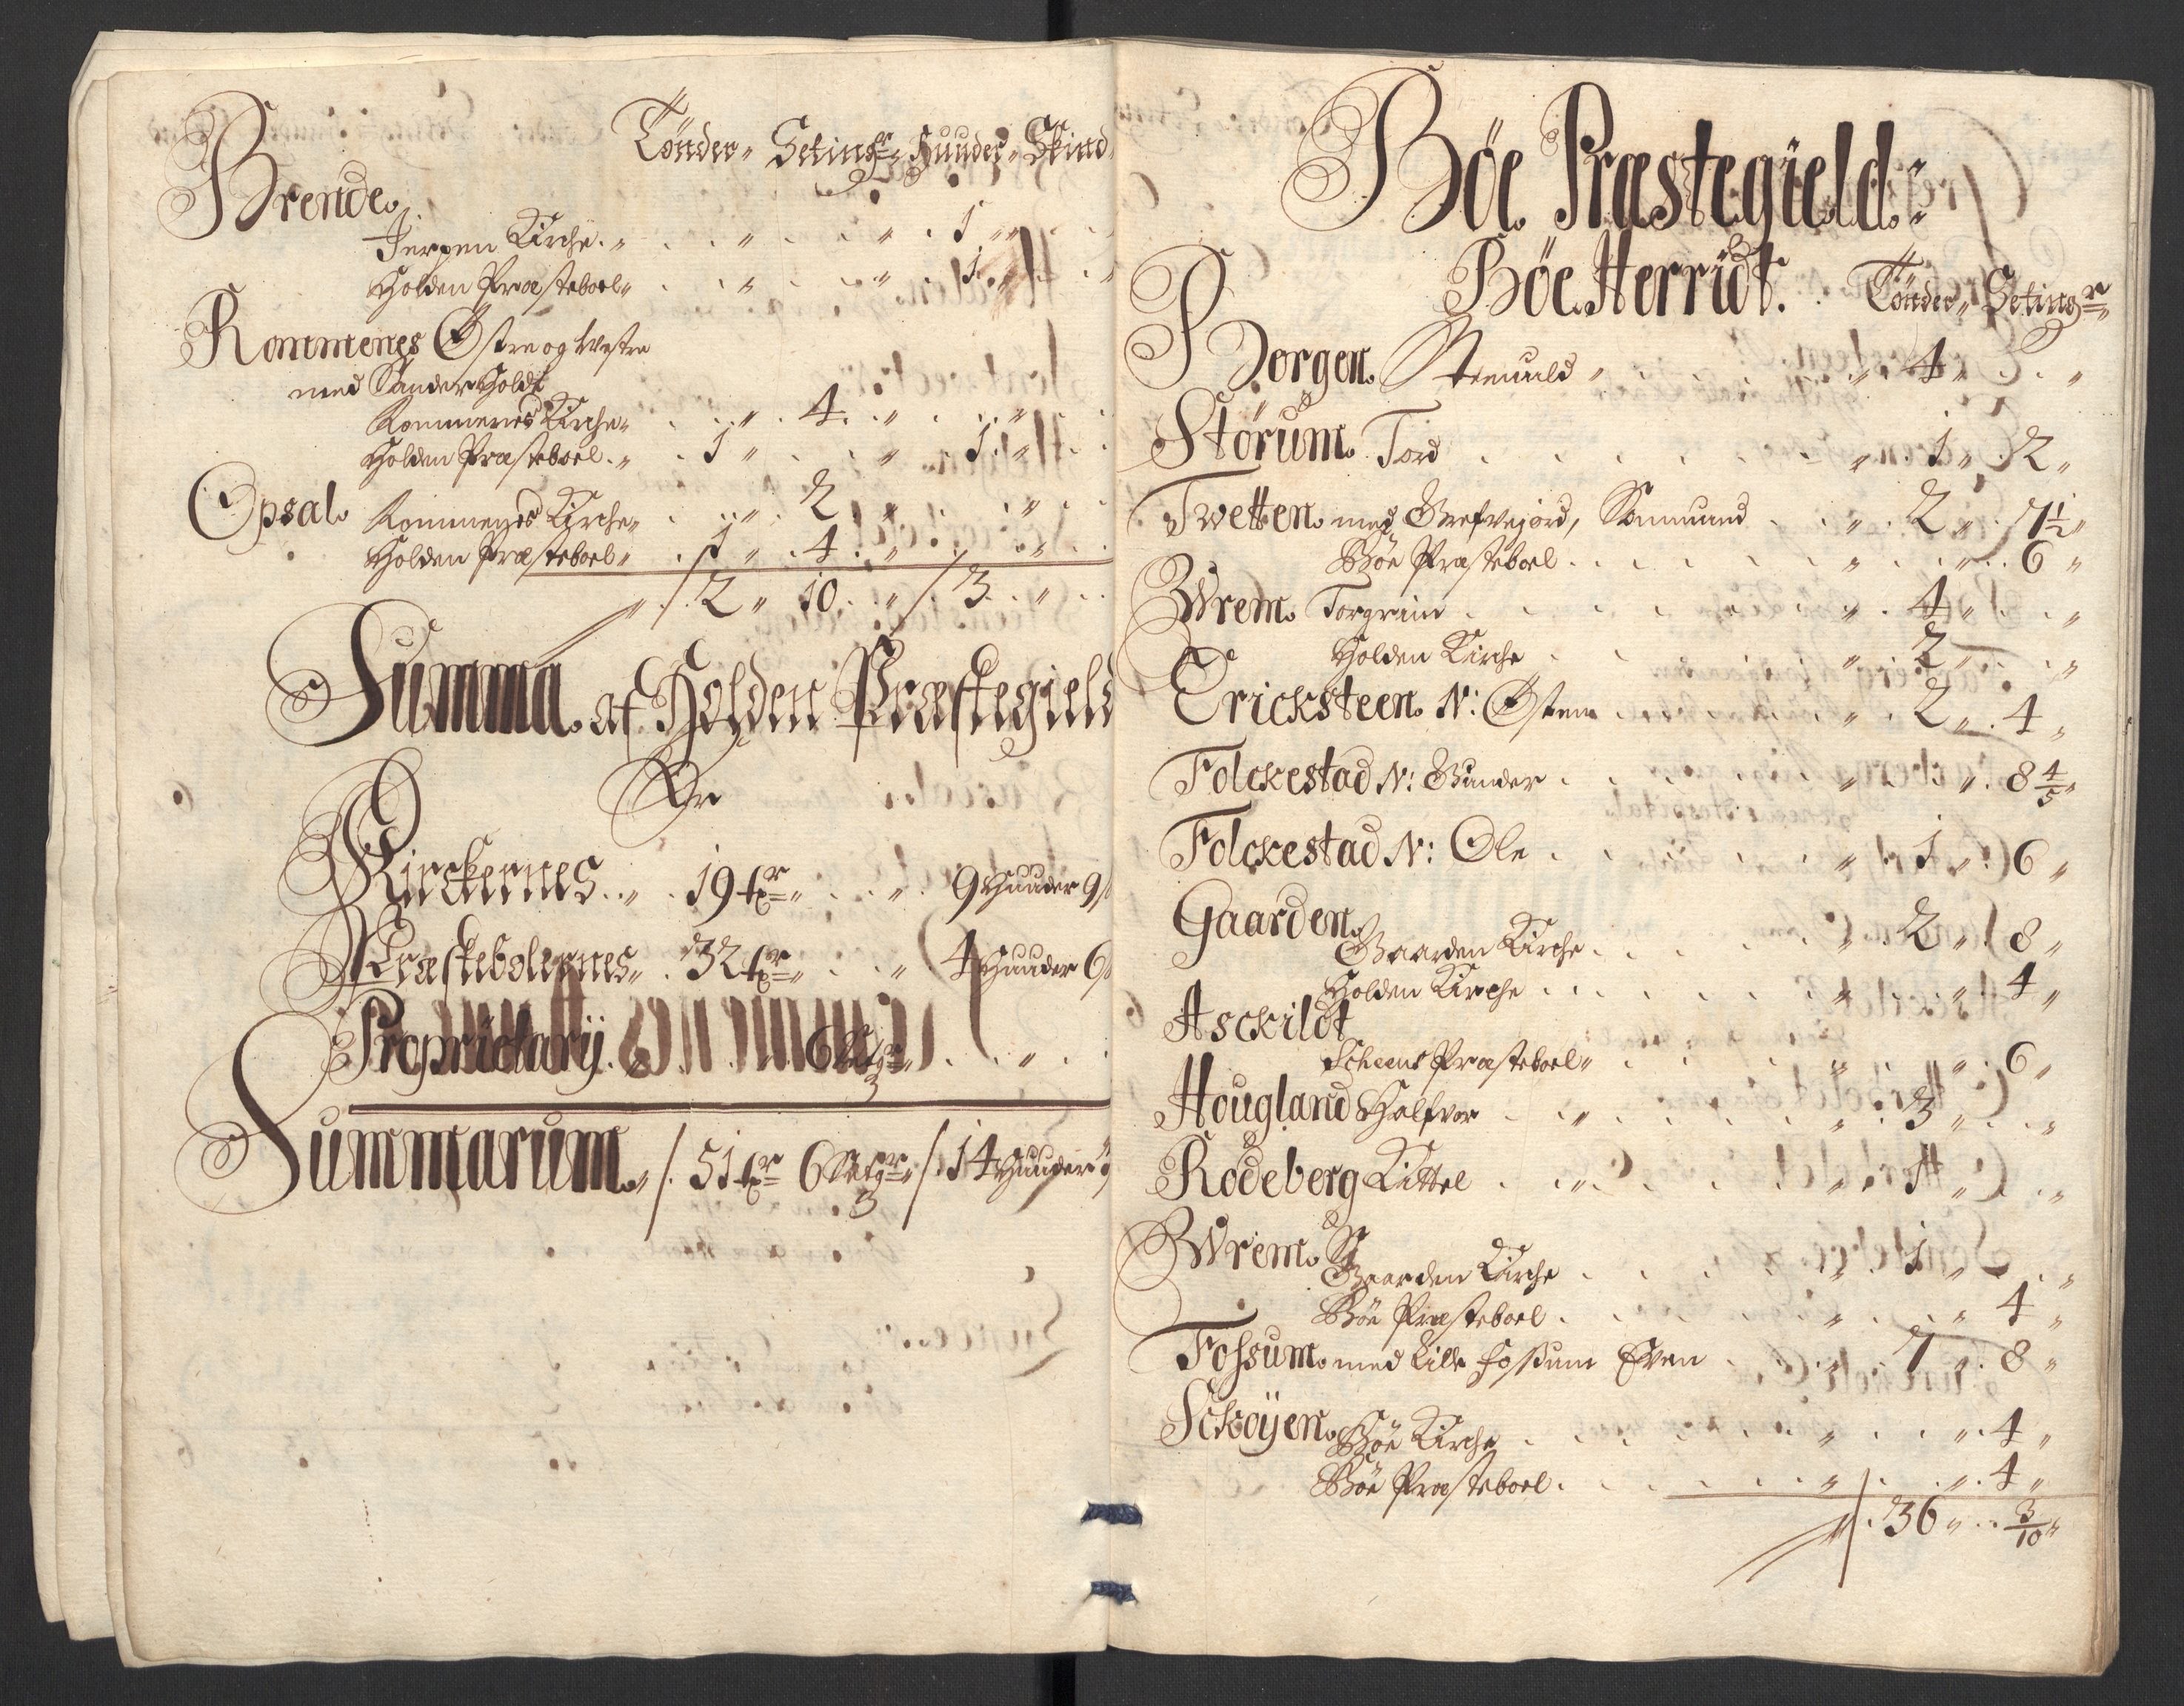 Tönder„ Setingr„ Huuder„ Skind
Brende
Jerpen Kirche „ . . „ . . „ . 1 „
Holden Præsteboel„ . . „ . . „ . 1 „
Rommenes Østre og Westre
med Sønder Holdt
Rommenes Kirche„ . . „ 4 . „ . . „
Holden Præsteboel „ . 1 „ . . „ . 1 „
Opsal Rommenes Kirche„ . . „ 2 „ . . „
Holden Præsteboel„ . 1 „ 4 . „ . . „
„ /. 2 „ 10 . „ /. 3 . „
Summa af Holden Præstegield
Er
Kirckernes . „ 19 tr „ . . „ 9 Huuder 9
Præstebolernes„ . 32 tr „ . . „ 4 Huuder 6
Proprietarÿ . „ . . „ 6 Setgr „ . . „
3
Summarum „ /. 51 tr 6 Setgr „ /. 14 Huuder
3
Böe Præstegield:
Böe Herridt. Tönder„ Setingr„
Borgen Steenuld „ . . „ 4 „ . . „
Störum Tord . . . „ 1 „ 2 „
Twetten med Grefvejord, Sømmund . . „ 2 „ 7½ „
Böe Præsteboel . . . „ . „ 6 „
Wrem Torgrim . . . „ 4 „ . . „
Holden Kirche . . . „ 2 „ . . „
Ericksteen N: Østen . . „ 2 „ 4 „
Folckestad N: Gunder . . . „ . „ 8 4/5 „
Folckestad N: Ole . . . „ 1 „ 6 „
Gaarden
Gaarden Kirche . . . „ 2 „ 8 „
Holden Kirche . . . „ . „ 4 „
Asckildt
Scheens Præsteboel„ . . . „ . „ 6 „
Hougland Halfvor . . „ . . „ 3 „ . . „
Rodeberg Kittel . . „ . . „ 1 „ . . „
Wrem
Gaarden Kirche . . . „ 1 „ . . „
Böe Præsteboel . . . „ . „ 4 „
Fossum med Lille Fossum Even . „ 7 „ 8 „
Sckoÿen
Böe Kirche . . . „ . „ 4 „
Böe Præsteboel . . . „ . „ 4 „
„ /. 36 „ . 3/10 „